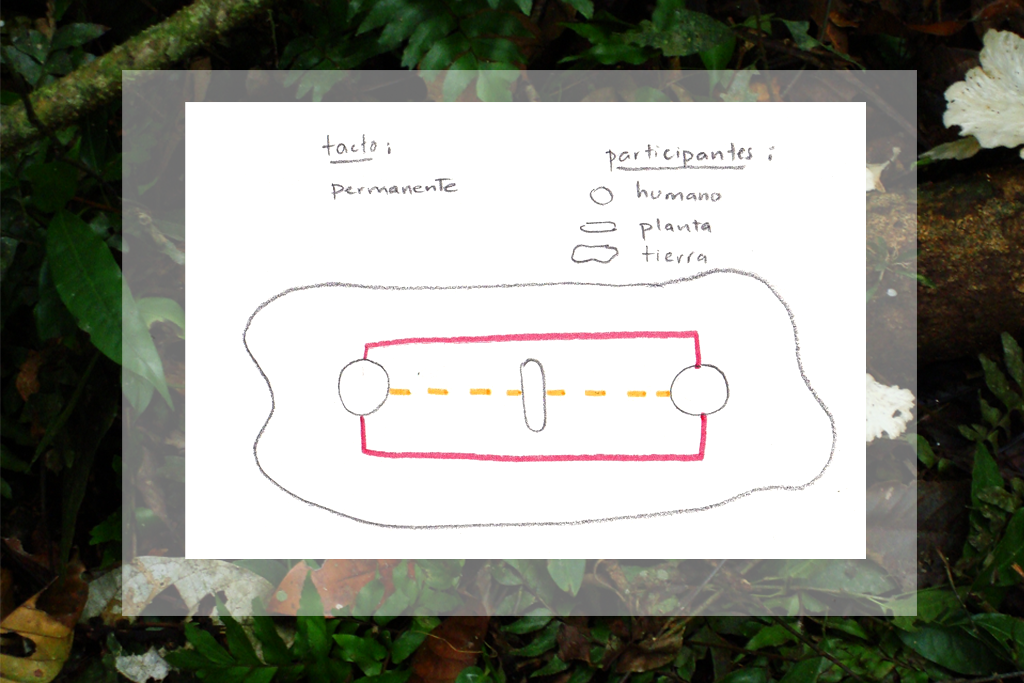 tacto:
permanente
participantes:
humano
planta
tierra